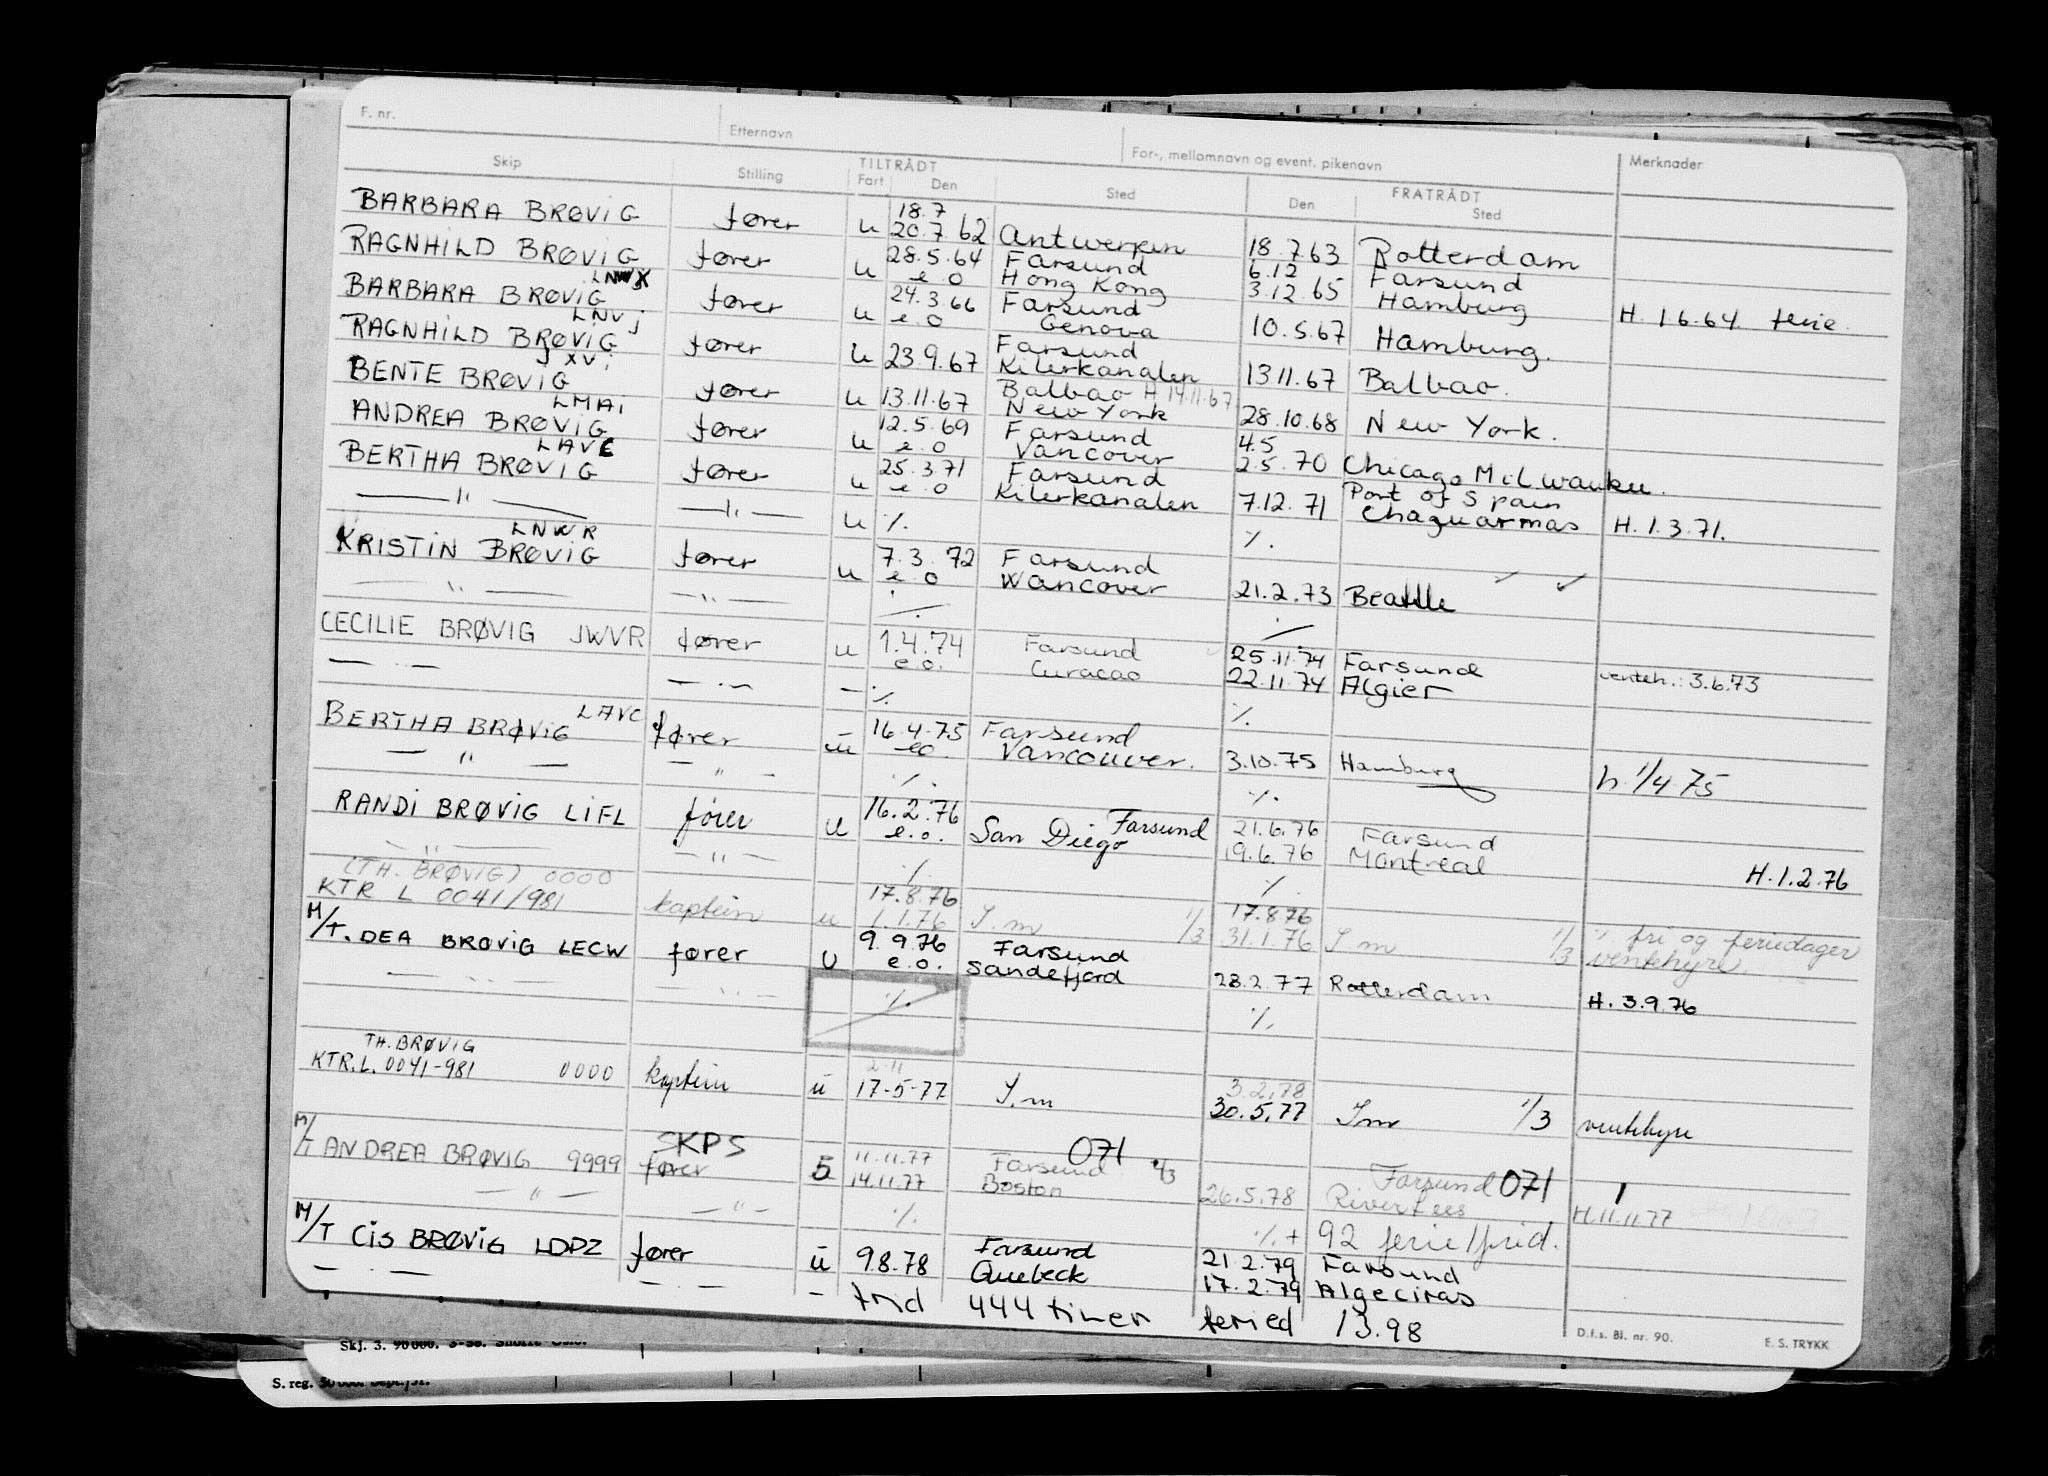 F. nr. Etternavn For-, mellomnavn og event. pikenavn Merknader
Skip Stilling TILTRÅDT Fart Den Sted FRATRÅDT Den Sted
BARBARA BRØVIG fører u 18.7 20.7.62 Antwerpen 18.7.63 Rotterdam
RAGNHILD BRØVIG fører u 28.5.64 e.o Farsund Hong Kong 6.12 3.12.65 Farsund Hamburg H. 1 6.64 ferie.
BARBARA BRØVIG fører u 24.3.66 e.o Farsund Genova 10.5.67 Hamburg.
LNVJ
RAGNHILD BRØVIG fører u 23.9.67 Farsund Kilerkanalen 13.11.67 Balbao.
JXVI
BENTE BRØVIG fører u 13.11.67 Balbao H 14.11.67 New York 28.10.68 New York.
LMAI
ANDREA BRØVIG fører u 12.5.69 e.o Farsund Vancover 4.5 2.5.70 Chicago Milwaukee.
LAVC
BERTHA BRØVIG fører u 25.3.71 e.o Farsund Kilerkanalen 7.12.71 Port of Spain Chaguarmas H. 1.3.71.
— " — — " — u %. %.
LNWR
KRISTIN BRØVIG fører u 7.3.72 e.o Farsund Wancover 21.2.73 Beattle
— " — — " —
CECILIE BRØVIG JWVR fører u 1.4.74 e.o. Farsund Curacao 25.11.74 22.11.74 Farsund Algier venteh.: 3.6.73
— " — — " — — %. %.
LAVC
BERTHA BRØVIG fører u 16.4.75 eo. Farsund Vancouver. 3.10.75 Hamburg h. 1/4 75
— " — — " — %. %.
RANDI BRØVIG LIFL fører u 16.2.76 e.o. Farsund San Diego 21.6.76 19.6.76 Farsund Montreal H.1.2.76
— " — — " — %. %.
(TH. BRØVIG) 0000
KTR L 0041/981 kaptein u 17.8.76 1.1.76 I.m 1/3 17.8.76 31.1.76 I.m 1/3 fri og feriedager ventehyre.
M/T. DEA BRØVIG LECW fører u 9.9.76 e.o. Farsund Sandefjord 28.2.77 Rotterdam H. 3.9.76
— " — — " — %. %.
TH. BRØVIG
KTR.L. 0041-981 0000 kaptein u 2.11 17-5-77 I.m 3.2.78 30.5.77 I.m 1/3 ventehyre
M/T ANDREA BRØVIG 9999 SKPS fører 5 11.11.77 14.11.77 Farsund 071 Boston 2/3 26.5.78 Farsund 071 Riverlees H.11.11.77 1
— " — — " — %. %. + 92 ferie/frid.
M/T CIS BRØVIG LDPZ fører u 9.8.78 Farsund Quebeck 21.2.79 17.2.79 Farsund Algeciras
— " — — " — — frid 444 timer feried 13.98
D.f.s. Bl. nr. 90. E. S. TRYKK
Skj. 3. 90 000.
S. reg.